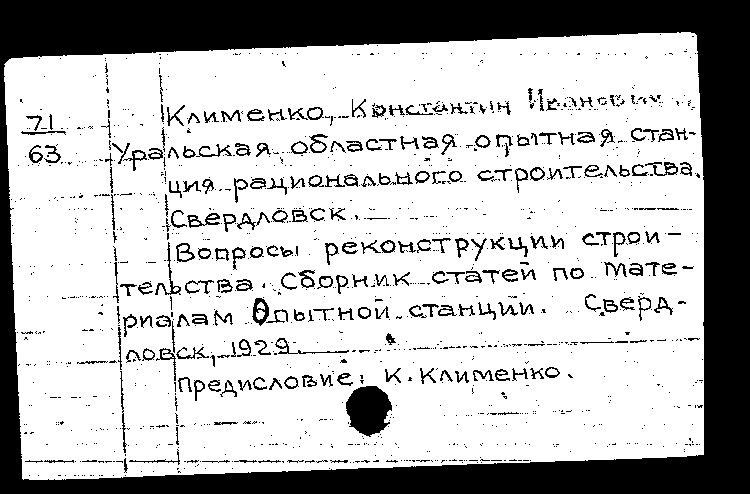 Клименко, Константин Иванович
71
63
Уральская областная опытная стан-
ция рационального строительства.
Свердловск.
Вопросы реконструкции строи-
тельства. Сборник статей по мате-
риалам Опытной станции. Сверд-
ловск, 1929.
Предисловие: К. Клименко.